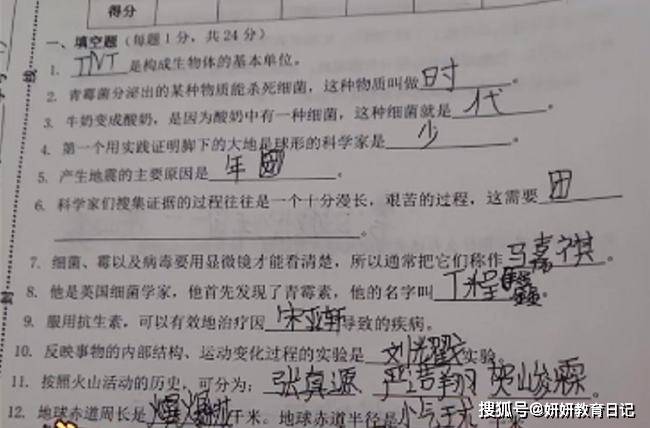 得分
一、填空题（每题1分，共24分）
1. TNT 是构成生物体的基本单位。
2. 青霉菌分泌出的某种物质能杀死细菌，这种物质叫做 时 。
3. 牛奶变成酸奶，是因为酸奶中有一种细菌，这种细菌就是 代 。
4. 第一个用实践证明脚下的大地是球形的科学家是 少 。
5. 产生地震的主要原因是 年 团 。
6. 科学家们搜集证据的过程往往是一个十分漫长，艰苦的过程，这需要 团
。
7. 细菌、霉以及病毒要用显微镜才能看清楚，所以通常把它们称作 马嘉祺 。
8. 他是英国细菌学家，他首先发现了青霉素，他的名字叫 丁程鑫 。
9. 服用抗生素，可以有效地治疗因 宋亚轩 导致的疾病。
10. 反映事物的内部结构、运动变化过程的实验是 刘耀 实验。
11. 按照火山活动的历史，可分为： 张真源 严浩翔 贺峻霖 。
12. 地球赤道周长是 千米。地球赤道半径是 小气 千米
线
封
搜狐号@妍妍教育日记